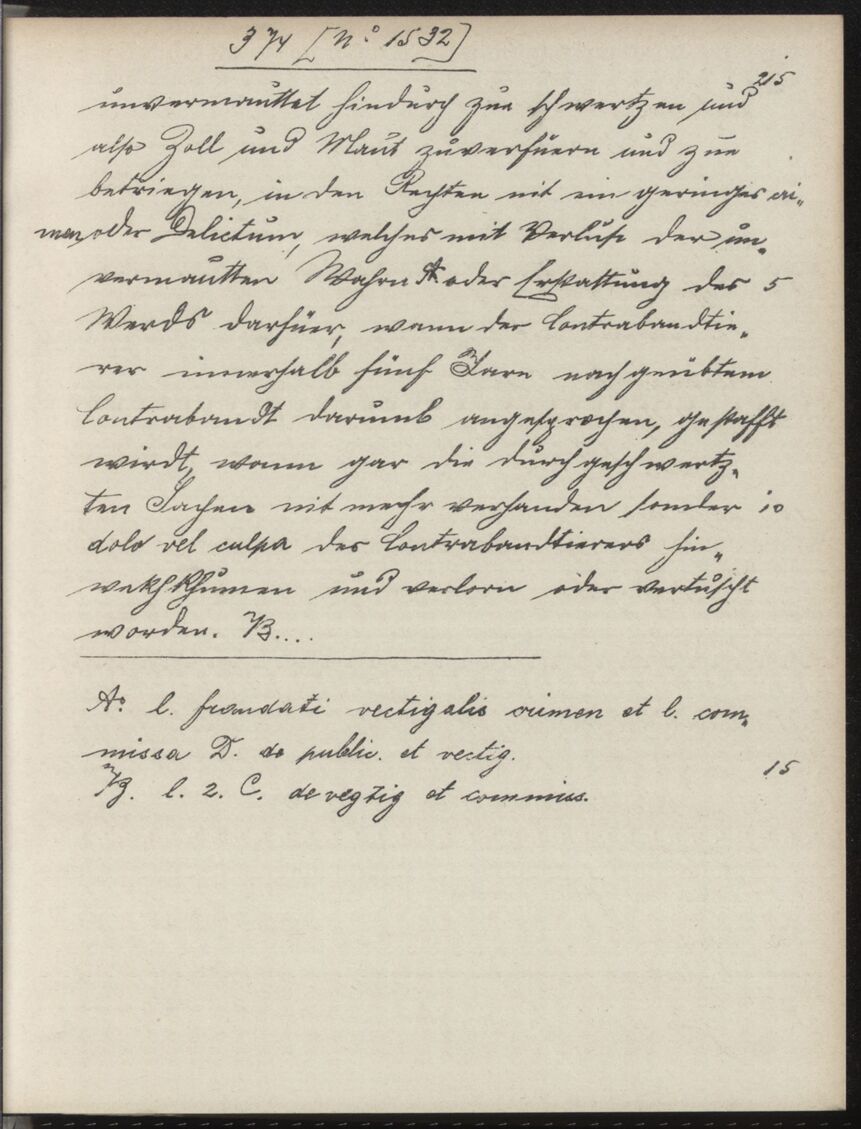 374 [No 1532]
215
unvermauttet hindurch zue schwertzen und
also Zoll und Maut zuverfüern und zue
betriegen, in den Rechten nit ein geringes cri„
men oder Delictum, welches mit Verlust der un„
vermautten Wahrn A oder Erstattung des 5
Werds darfüer, wann der Contrabandtie„
rer innerhalb fünf Jarn nach geübtem
Contrabandt darumb angesprochen, gestrafft
wirdt, wann gar die durchgeschwertz„
ten Sachen nit mehr verhanden sonder 10
dolo vel culpa des Contrabandtierers hin„
wekhkhumen und verlorn oder vertuscht
worden. B....
A. l. fraudati vectigalis crimen et l. com„
missa D. de public. et vectig.
15
B. l. 2. C. de vegtig et commiss.